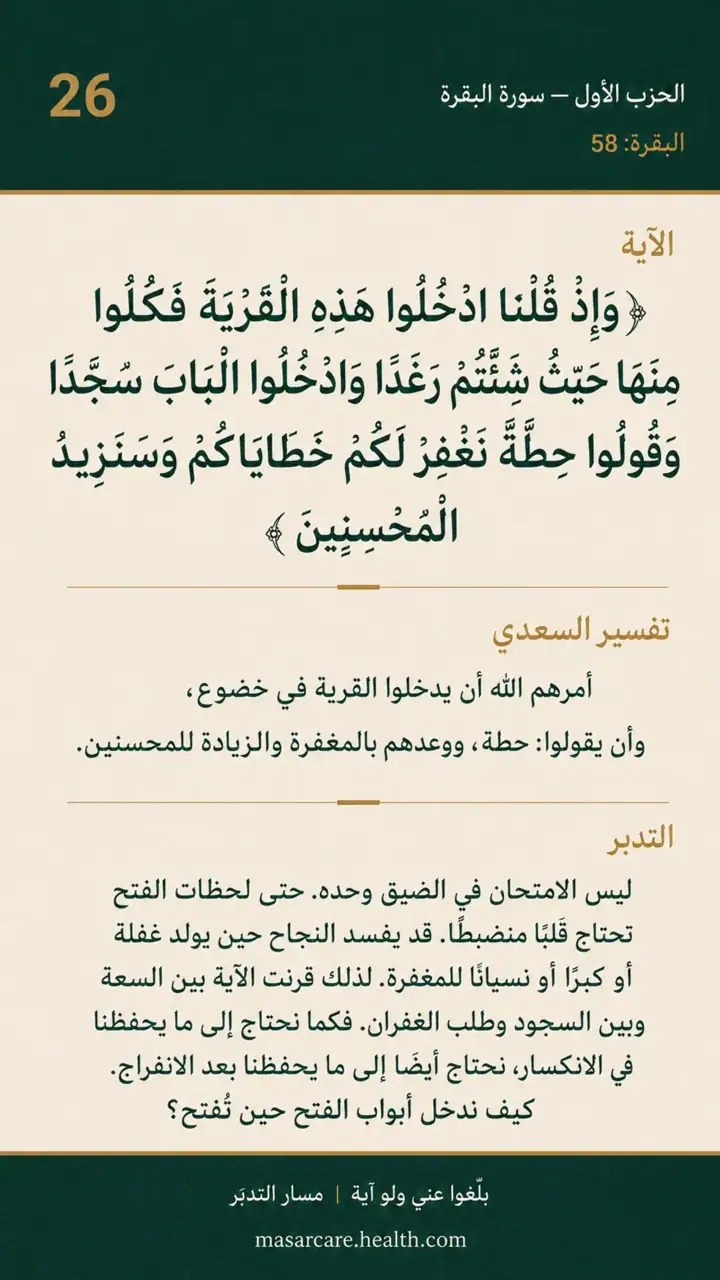 26
الحزب الأول — سورة البقرة
البقرة: 58
الآية
﴿ وَإِذْ قُلْنَا ادْخُلُوا هَذِهِ الْقَرْيَةَ فَكُلُوا
مِنَهَا حَيّثُ شَئَّتُمْ رَغَدًا وَادْخُلُوا الْبَابَ سُجَّدًا
وَقُولُوا حِطَّةً نَغْفِرْ لَكُمْ خَطَايَاكُمْ وَسَنَزِيدُ
الْمُحْسِنِينَ ﴾
تفسير السعدي
أمرهم الله أن يدخلوا القرية في خضوع،
وأن يقولوا: حطة، ووعدهم بالمغفرة والزيادة للمحسنين.
التدبر
ليس الامتحان في الضيق وحده. حتى لحظات الفتح
تحتاج قَلبًا منضبطًا. قد يفسد النجاح حين يولد غفلة
أو كبرًا أو نسيانًا للمغفرة. لذلك قرنت الآية بين السعة
وبين السجود وطلب الغفران. فكما نحتاج إلى ما يحفظنا
في الانكسار، نحتاج أيضَا إلى ما يحفظنا بعد الانفراج.
كيف ندخل أبواب الفتح حين تُفتح؟
بلّغوا عني ولو آية | مسار التدبَر
masarcare.health.com